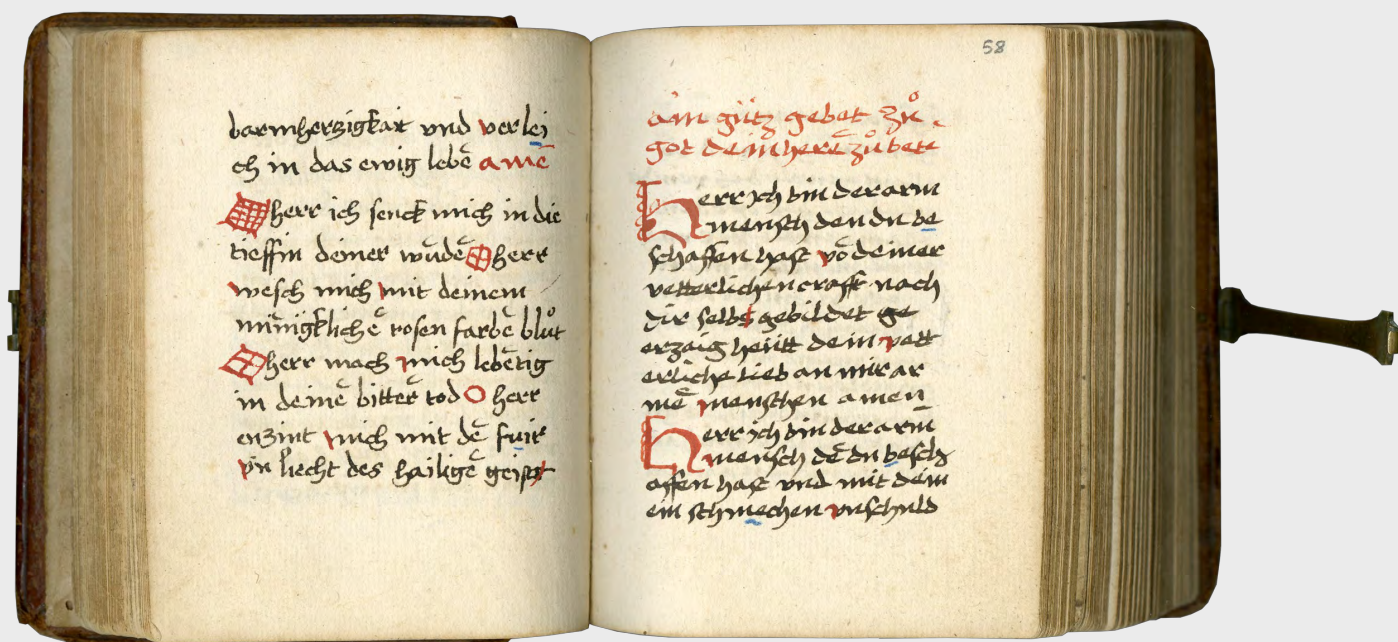 barmherzigkait vnd verlei
ch in das ewig lebē amē
O herr ich senck mich in die
tieffin deiner wūdē O herr
wesch mich mit deinem
minigklichē rosen farbē blůt
O herr mach mich lebētig
in deinē bittēr tod O herr
enzint mich mit dē fuir
vn̄ liecht des hailigē geist
58
ain gůtz gebet zů
got deim herē zů bete
Herr ich bin der arm
mensch den du be
schaffen hast vō deiner
vetterlichen crafft nach
dir selbs gebildet ge
erzaig heütt dein vett
erliche lieb an mir ar
mē menschen amen
Herr ich bin der arm
mensch dē du besch
affen hast vnd mit deim
ein schmechen vnschuld